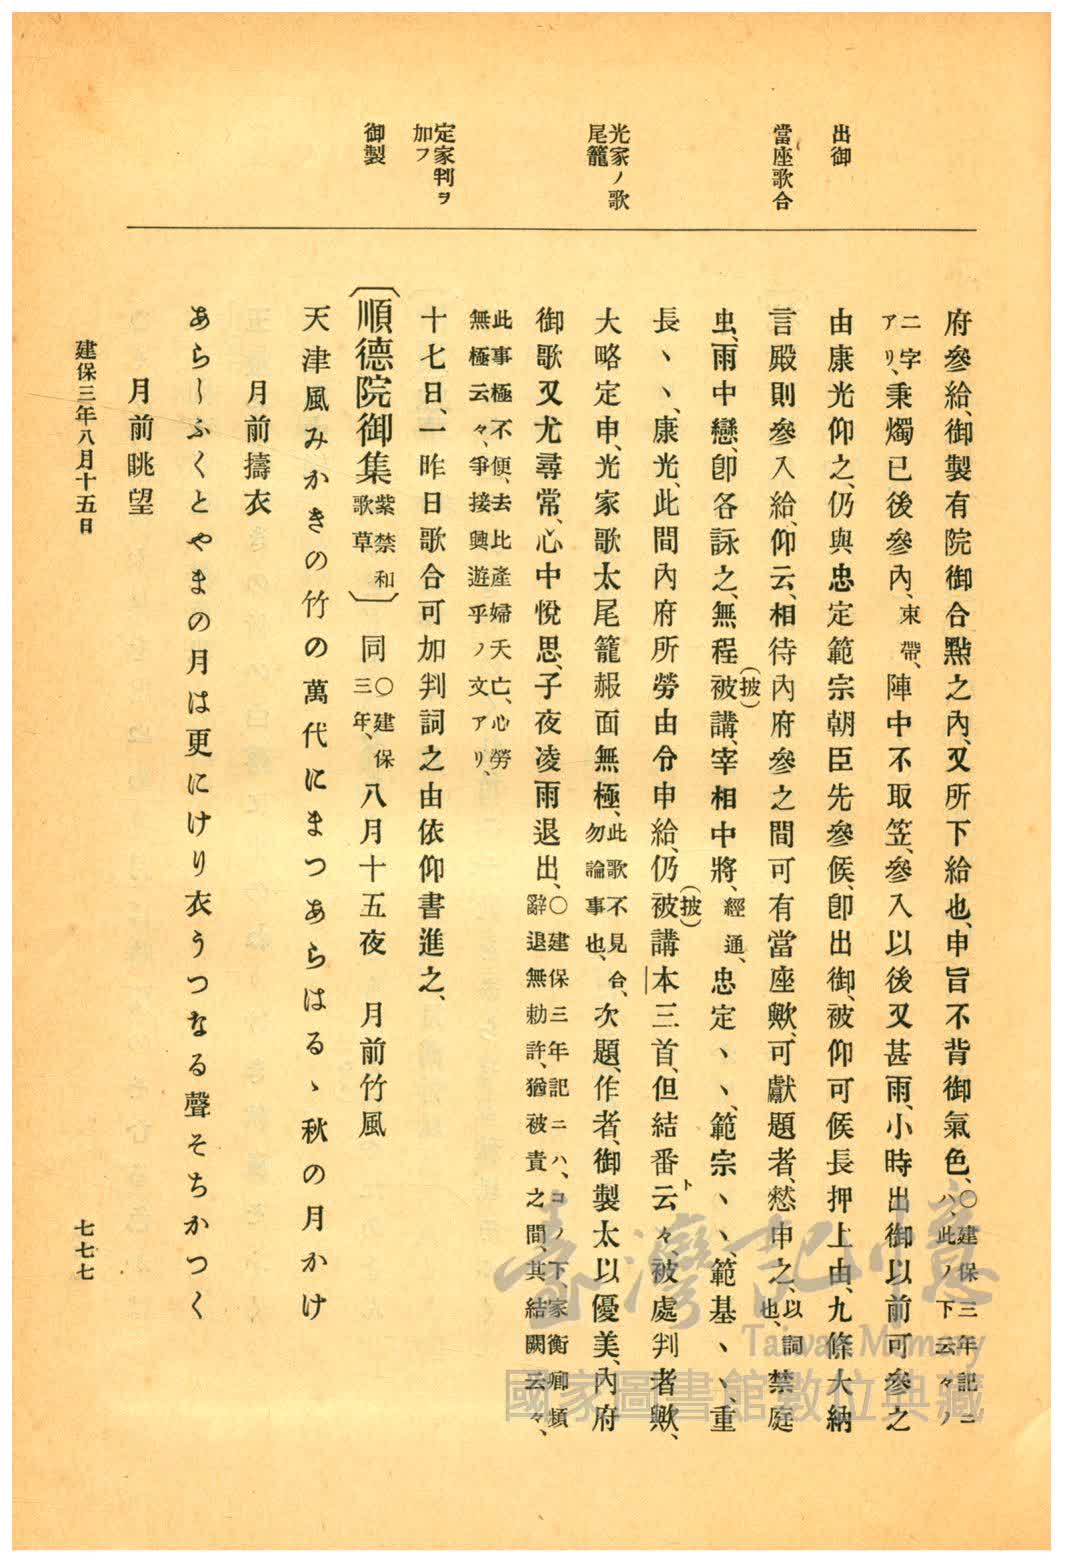 出御
當座歌合
光家ノ歌
尾籠
定家判ヲ
加フ
御製
府參給、御製有院御合點之内、又所下給也、申旨不背御氣色、〇建保三年記ニハ、此ノ下云々ノ
二字アリ、秉燭已後參内、束帶、陣中不取笠、參入以後又甚雨、小時出御以前可參之
由康光仰之、仍與忠定範宗朝臣先參候、卽出御、被仰可候長押上由、九條大納
言殿則參入給、仰云、相待内府參之間可有當座歟、可獻題者、愗申之、以詞也、禁庭
虫、雨中戀、卽各詠之、無程被(披)講、宰相中將、經通、忠定丶丶、範宗丶丶、範基丶丶、重
長丶丶、康光、此間内府所勞由令申給、仍被(披)講本三首、但結番云ト々、被處判者歟、
大略定申、光家歌太尾籠赧面無極、此歌不見合、勿論事也、次題、作者、御製太以優美、内府
御歌又尤尋常、心中悅思、子夜凌雨退出、〇建保三年記ニハ、コノ下、家衡卿頻辭退無勅許、猶被責之間、其結闕云々、
此事極不便、去比產婦夭亡、心勞無極云々、爭接興遊乎ノ文アリ、
十七日、一昨日歌合可加判詞之由依仰書進之、
〔順德院御集紫禁和歌草〕同〇建保三年、八月十五夜　月前竹風
天津風みかきの竹の萬代にまつあらはるゝ秋の月かけ
月前擣衣
あらしふくとやまの月は更にけり衣うつなる聲そちかつく
月前眺望
建保三年八月十五日
七七七
臺灣記憶
Taiwan Memory
國家圖書館數位典藏